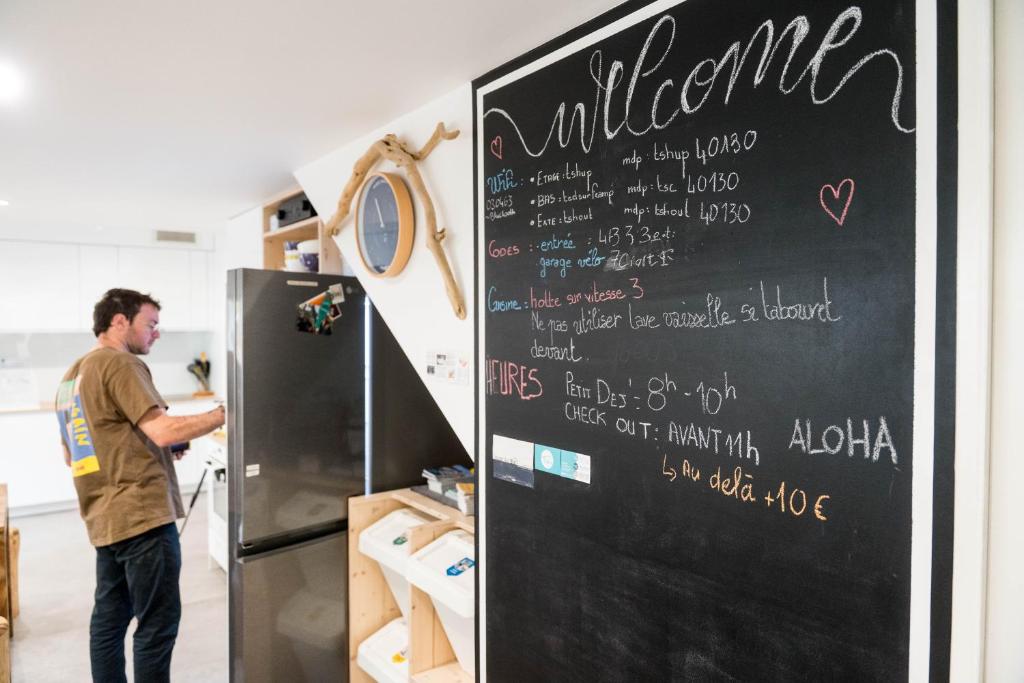 welcome
Wifi : • ETAGE : tshup mdp : tshup 40130
• BAS : tedsurfcamp mdp : tsc 40130
• EXTE : tshout mdp : tshout 40130
CODES : - entrée :
garage vélo
Cuisine : hotte sur vitesse 3
Ne pas utiliser lave vaisselle si tabouret
devant.
HEURES PETIT DEJ' : 8h - 10h
CHECK OUT : AVANT 11h ALOHA
↳ Au delà + 10 €